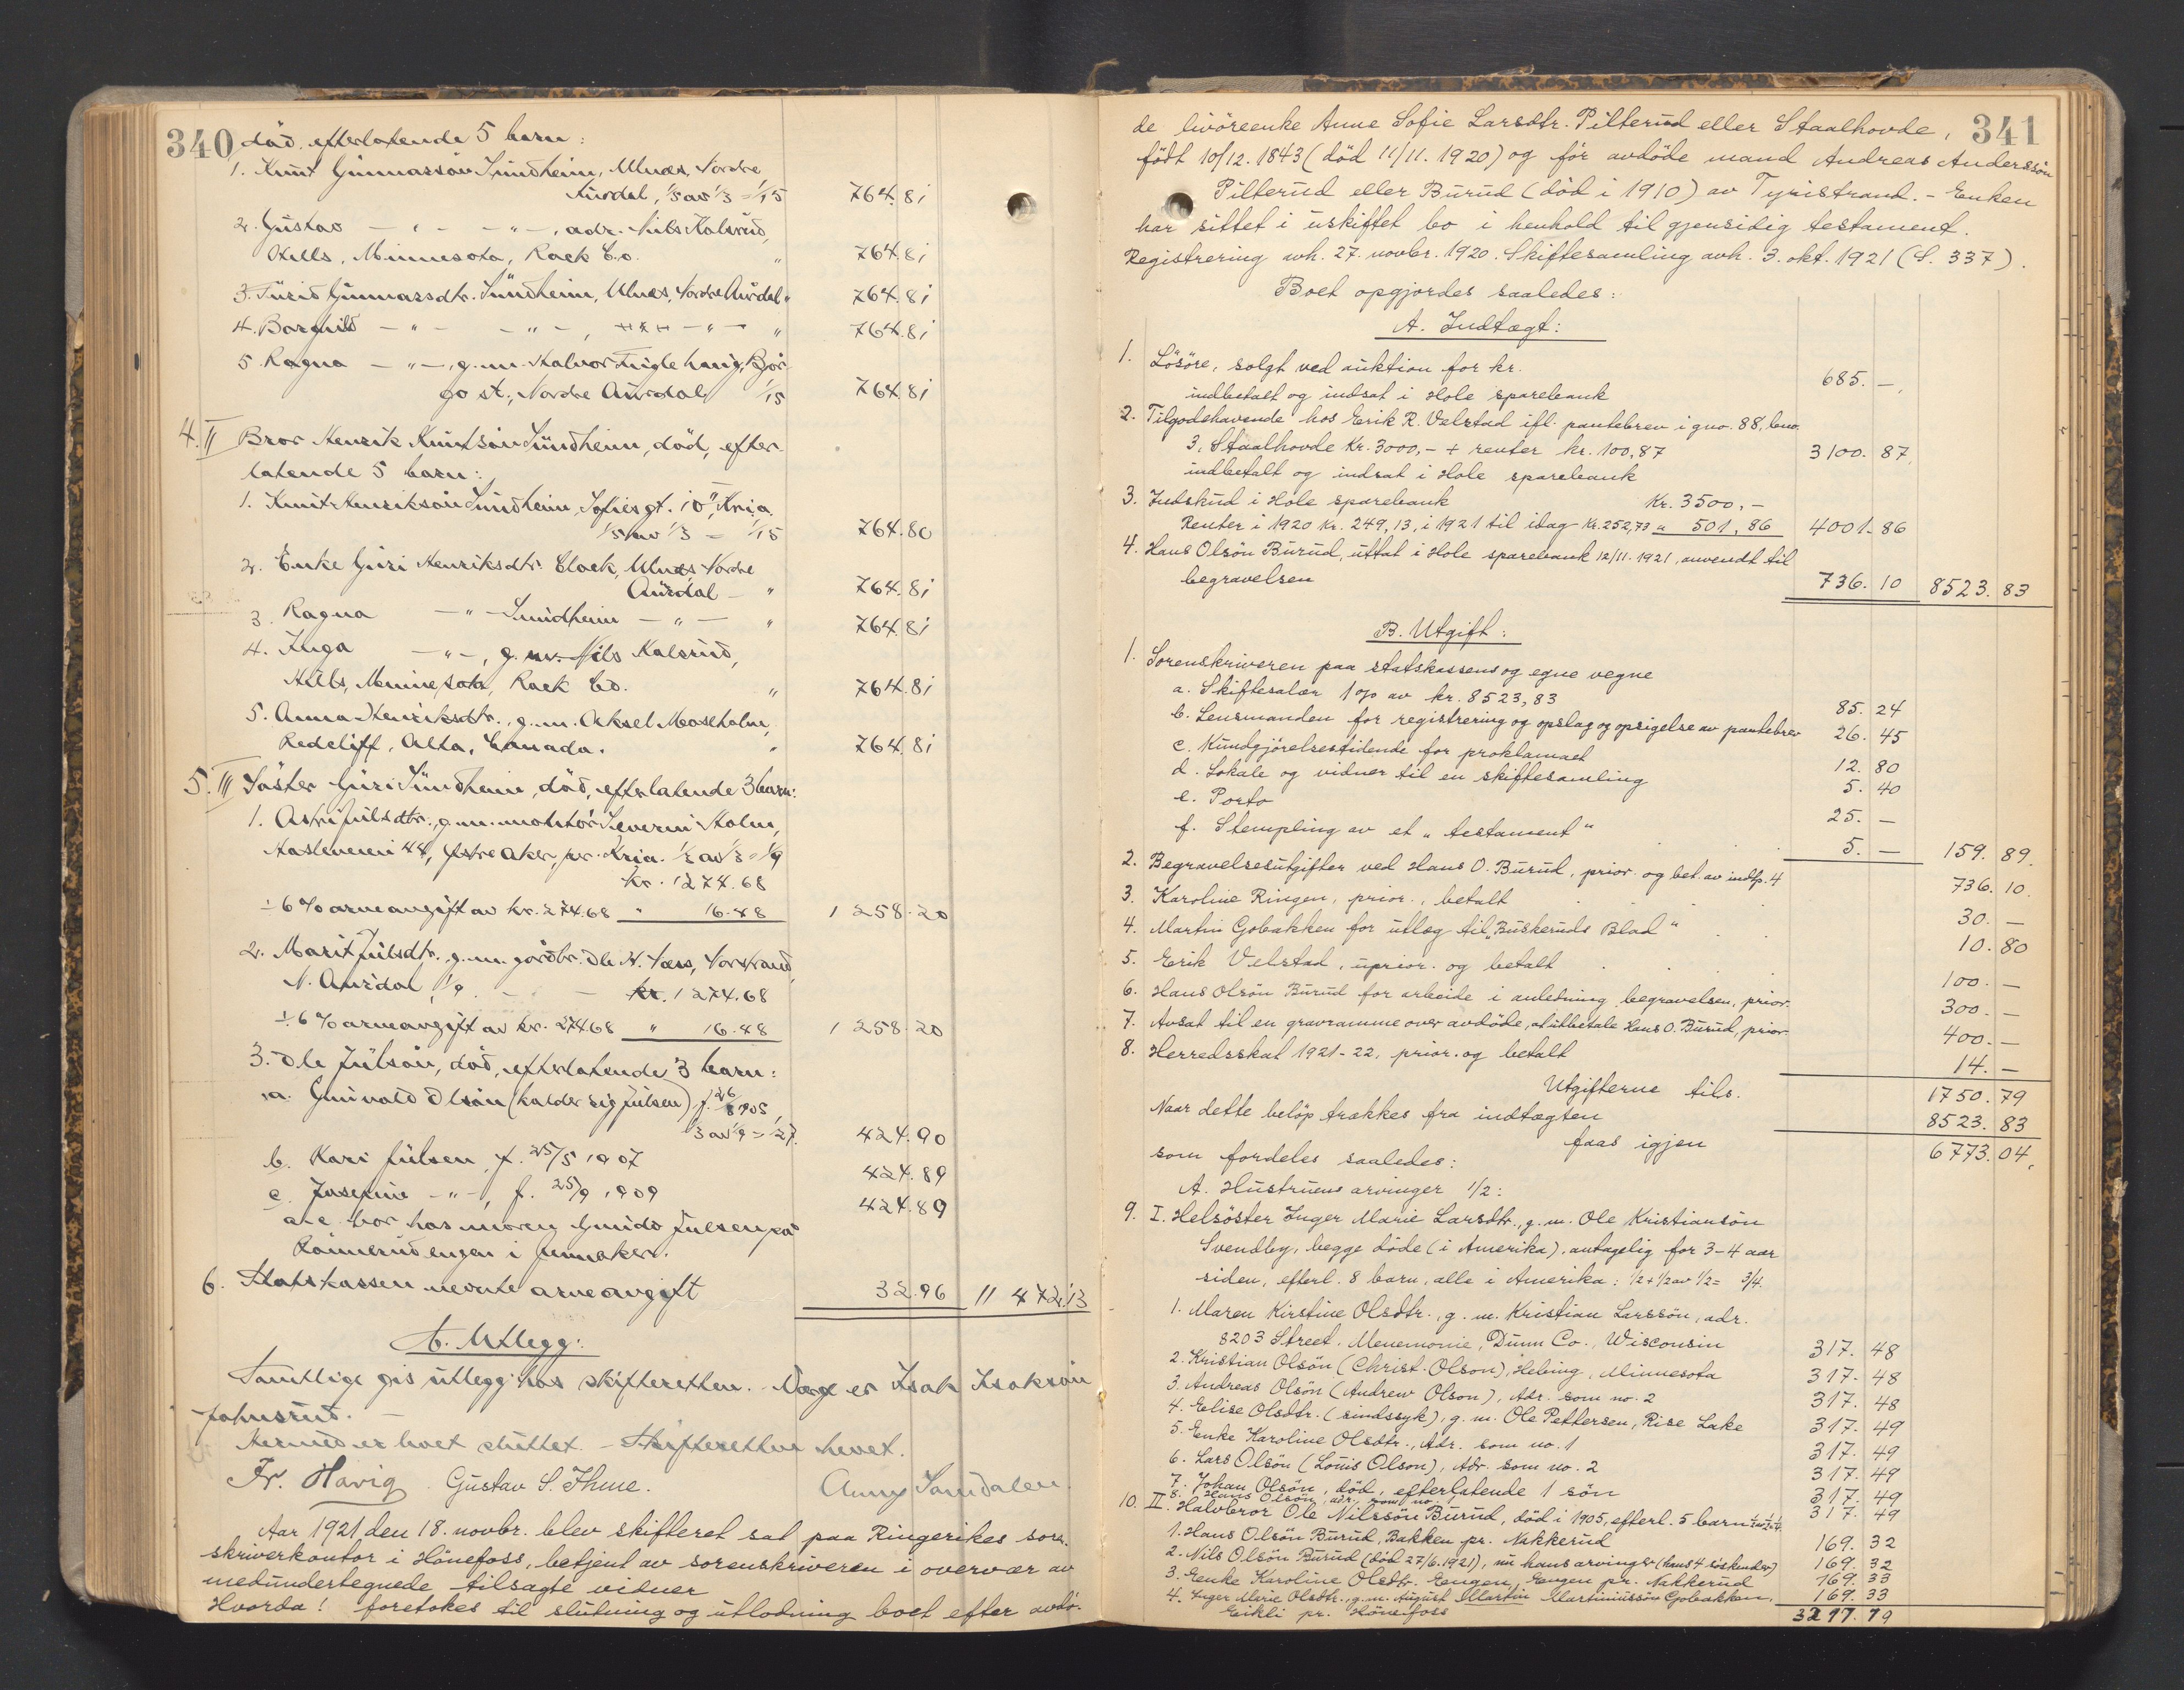 340
död, efterlatende 5 barn:
1. Knut Gunnarssön Sundheim, Ulnes, Nordre
Aurdal, 1/5 av 1/3 = 1/15 764.81
2. Gustav — " — — " —, adr. Nils Kalsrud,
Hills, Minnesota, Rock Co. " 764.81
3. Turid Gunnarsdtr. Sundheim, Ulnes, Nordre Aurdal " 764.81
4. Borghild — " — — " —, — " — " 764.81
5. Ragna — " —, g.m. Halvor Fuglehaug, Björ-
go st., Nordre Aurdal 1/15 764.81
4. II Bror Henrik Knutsön Sundheim, död, efter-
latende 5 barn:
1. Knut Henriksön Sundheim, Sofiesgt. 10 II, Kr.ia.
1/5 av 1/3 = 1/15 764.80
2. Enke Guri Henriksdtr. Block, Ulnes, Nordre
Aurdal — " 764.81
3. Ragna — " — Sundheim — " — " 764.81
4. Inga — " —, g.m. Nils Kalsrud,
Hills, Minnesota, Rock Co. " 764.81
5. Anna Henriksdtr., g.m. Aksel Moseholm,
Redcliff, Alta, Canada. " 764.81
5. III Söster Guri Sundheim, död, efterlatende 3 barn:
1. Astri Julsdtr., g.m. montör Severin Holm,
Hasleveien 44, Östre Aker, pr. Kria. 1/3 av 1/3 = 1/9
kr. 1274.68
÷ 6 % arveavgift av kr. 274.68 " 16.48 1 258.20
2. Marit Julsdtr. g.m. gårdbr. Ole N. Næss, Norstrand,
N. Aurdal, 1/9 — — kr. 1274.68
÷ 6 % arveavgift av kr. 274.68 " 16.48 1 258.20
3. Ole Julsön, död, efterlatende 3 barn:
a. Gunvald Olsön (kalder sig Julsen) f. 26/8 1905,
1/3 av 1/9 = 1/27. 424.90
b. Kari Julsen, f. 25/5 1907 424.89
c. Josefine — " —, f. 25/9 1909 424.89
a-c bor hos moren Gunda Julsen på
i Junaker.
6. Statskassen nevnte arveavgift 32.96 11 472.13
C. Utlegg:
Samtlige gis utlegg hos skifteretten. Verge er Isak Isaksön
Johnsrud. —
Hermed er boet sluttet. – Skifteretten hevet.
Fr. Havig Gustav S. Thune. Anny Sandalen.
Aar 1921 den 18. novbr. blev skifteret sat paa Ringerikes soren-
skriverkontor i Hönefoss, betjent av sorenskriveren i overvær av
medundertegnede tilsagte vidner
Hvorda! foretokes til slutning og utlodning boet efter avdö-
341
de livöreenke Anne Sofie Larsdtr. Pilterud eller Staalhovde,
födt 10/12. 1843 (död 11/11. 1920) og för avdöde mand Andreas Anderssön
Pilterud eller Burud (död i 1910) av Tyristrand. – Enken
har sittet i uskiftet bo i henhold til gjensidig testament.
Registrering avh. 27. novbr. 1920. Skiftesamling avh. 3. okt. 1921 (S. 337).
Boet opgjordes saaledes:
A. Indtægt:
1. Lösöre, solgt ved auktion for kr. 685. —
indbetalt og indsat i Hole sparebank
2. Tilgodehavende hos Erik R. Velstad ifl. pantebrev i gno. 88, bno.
3, Staalhovde Kr. 3000,- + renter kr. 100,87 3100. 87
indbetalt og indsat i Hole sparebank
3. Indskud i Hole sparebank Kr. 3500,-
Renter i 1920 Kr. 249,13, i 1921 til idag Kr. 252,73 " 501,86 4001.86
4. Hans Olsön Burud, uttat i Hole sparebank 12/11. 1921, anvendt til
begravelsen 736. 10 8523. 83
B. Utgift:
1. Sorenskriveren paa statskassens og egne vegne
a. Skiftesalær 1% av kr. 8523,83 85. 24
b. Lensmanden for registrering og opslag og opsigelse av pantebrev 26. 45
c. Kundgjörelsestidende for proklamaet 12. 80
d. Lokale og vidner til en skiftesamling 5. 40
e. Porto 25. —
f. Stempling av et "testament" 5. — 159. 89.
2. Begravelsesutgifter ved Hans O. Burud, prior. og bet. av indtp. 4 736. 10.
3. Karoline Ringen, prior., betalt 30. —
4. Martin Gobakken for utlæg til "Buskeruds Blad" 10. 80
5. Erik Velstad, uprior. og betalt 100. —
6. Hans Olsön Burud for arbeide i anledning begravelsen, prior. 300. —
7. Avsat til en gravramme over avdöde, at utbetale Hans O. Burud, prior. 400. —
8. Herredsskat 1921-22, prior. og betalt 14. —
Utgifterne tils. 1750. 79
Naar dette belöp trækkes fra indtægten 8523. 83
faas igjen 6773. 04,
som fordeles saaledes:
A. Hustruens arvinger 1/2:
9. I. Helsöster Inger Marie Larsdtr., g.m. Ole Kristiansön
Svendby, begge döde (i Amerika), antagelig for 3-4 aar
siden, efterl. 8 barn, alle i Amerika: 1/2 + 1/2 av 1/2 = 3/4.
1. Maren Kirstine Olsdtr., g.m. Kristian Larssön, adr.
8203 Street, Menemonie, Dunn Co., Wisconsin 317. 48
2. Kristian Olsön (Christ. Olson), Hebing, Minnesota 317. 48
3. Andreas Olsön (Andrew Olson), Adr. som no. 2 317. 48
4. Elise Olsdtr. (sindssyk), g.m. Ole Pettersen, Rise Lake 317. 49
5. Enke Karoline Olsdtr., Adr. som no. 1 317. 49
6. Lars Olsön (Louis Olson), Adr. som no. 2 317. 49
7. Johan Olsön, död, efterlatende 1 sön 317. 49
8. Hans Olsön, adr. som no. 1 317. 49
10. II. Halvbror Ole Nilssön Burud, död i 1905, efterl. 5 barn
1. Hans Olsön Burud, Bakken pr. Nakkerud 169. 32
2. Nils Olsön Burud (död 27/6. 1921), nu hans arvinger (hans 4 söskender) 169. 32
3. Enke Karoline Olsdtr. Eengen, Eengen pr. Nakkerud 169. 33
4. Inger Marie Olsdtr., g.m. August Martin Martiniussön Gobakken, 169. 33
Eikli pr. Hönefoss 3217. 19